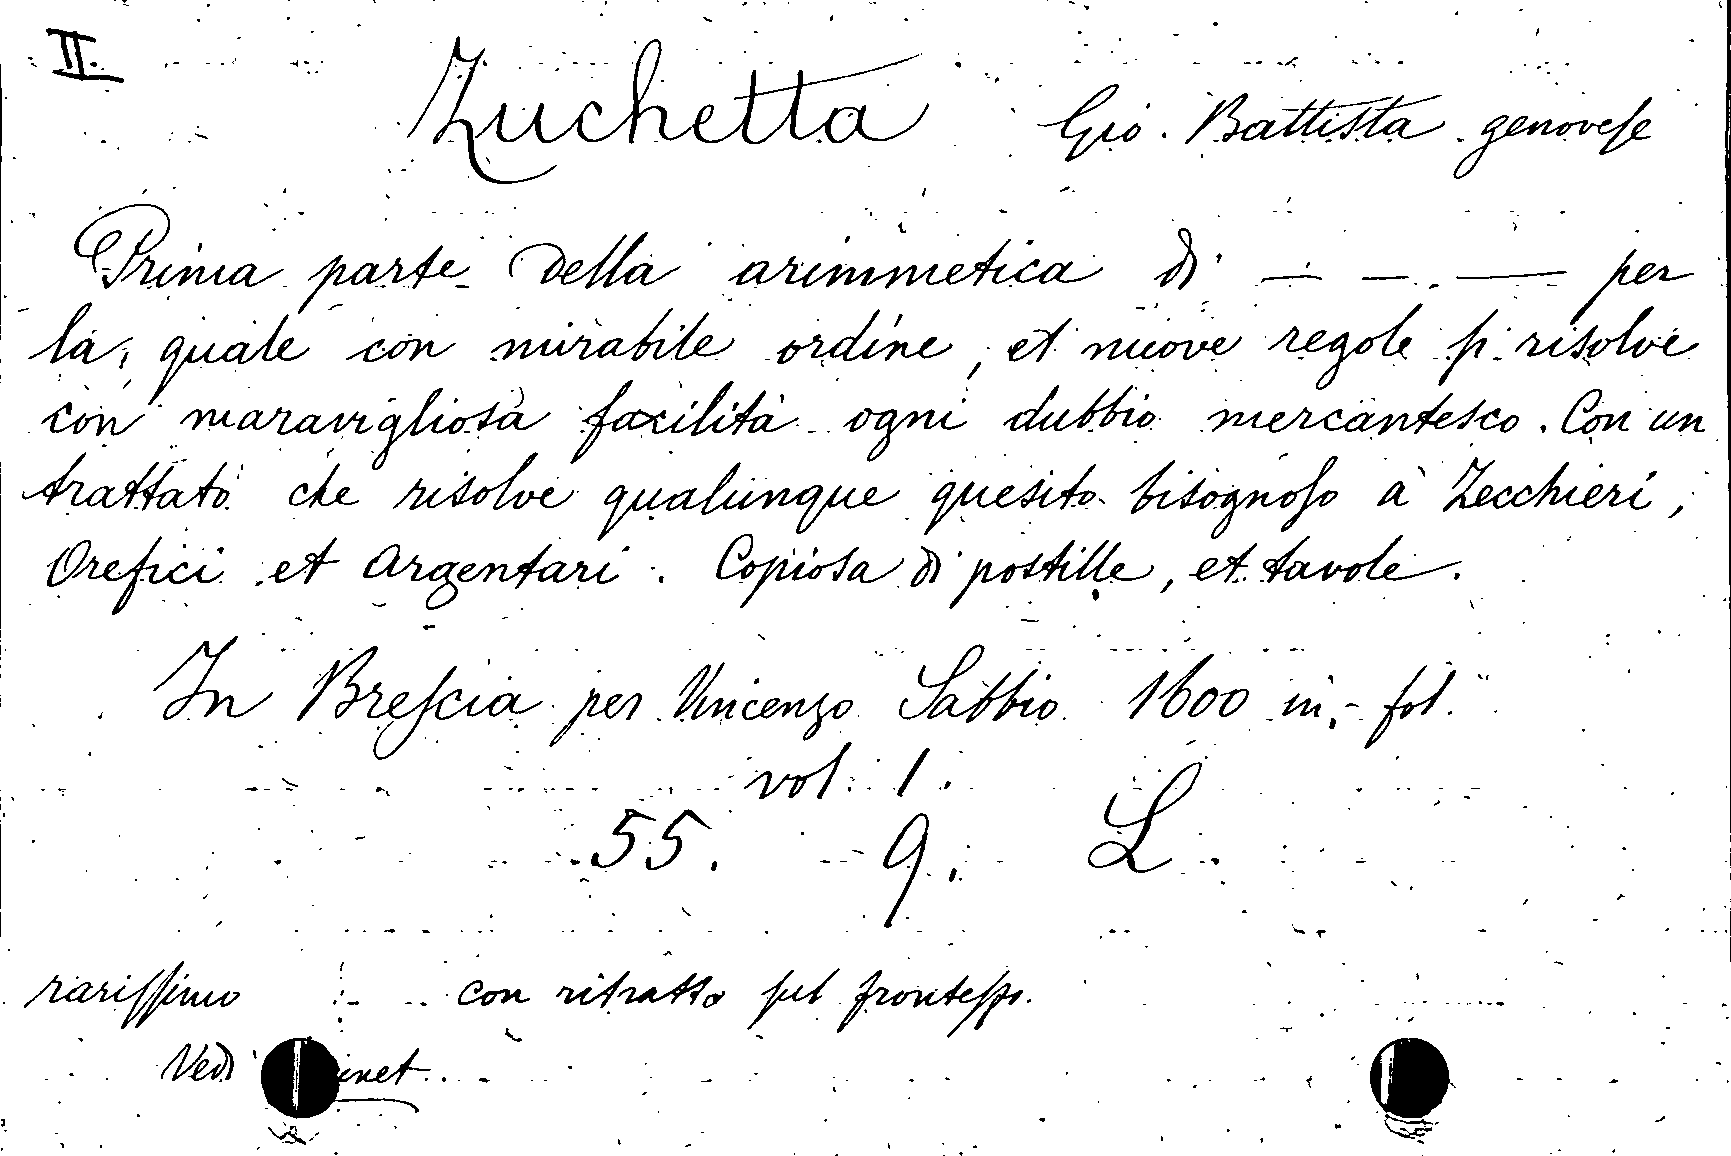 II.
Zuchetta Gio. Battista genoveſe
Prima parte della arimmetica di — — . — per
la quale con mirabile ordine, et nuove regole ſi risolve
con maravigliosa facilità ogni dubbio mercantesco. Con un
trattato che risolve qualunque quesito bisognoſo à Zecchieri,
Orefici et Argentari. Copiosa di postille, et tavole.
In Breſcia per Vincenzo Sabbio 1600 in-fol.
vol. 1.
55. 9. L
rariſſimo con ritratto ſul fronteſp.
Vedi